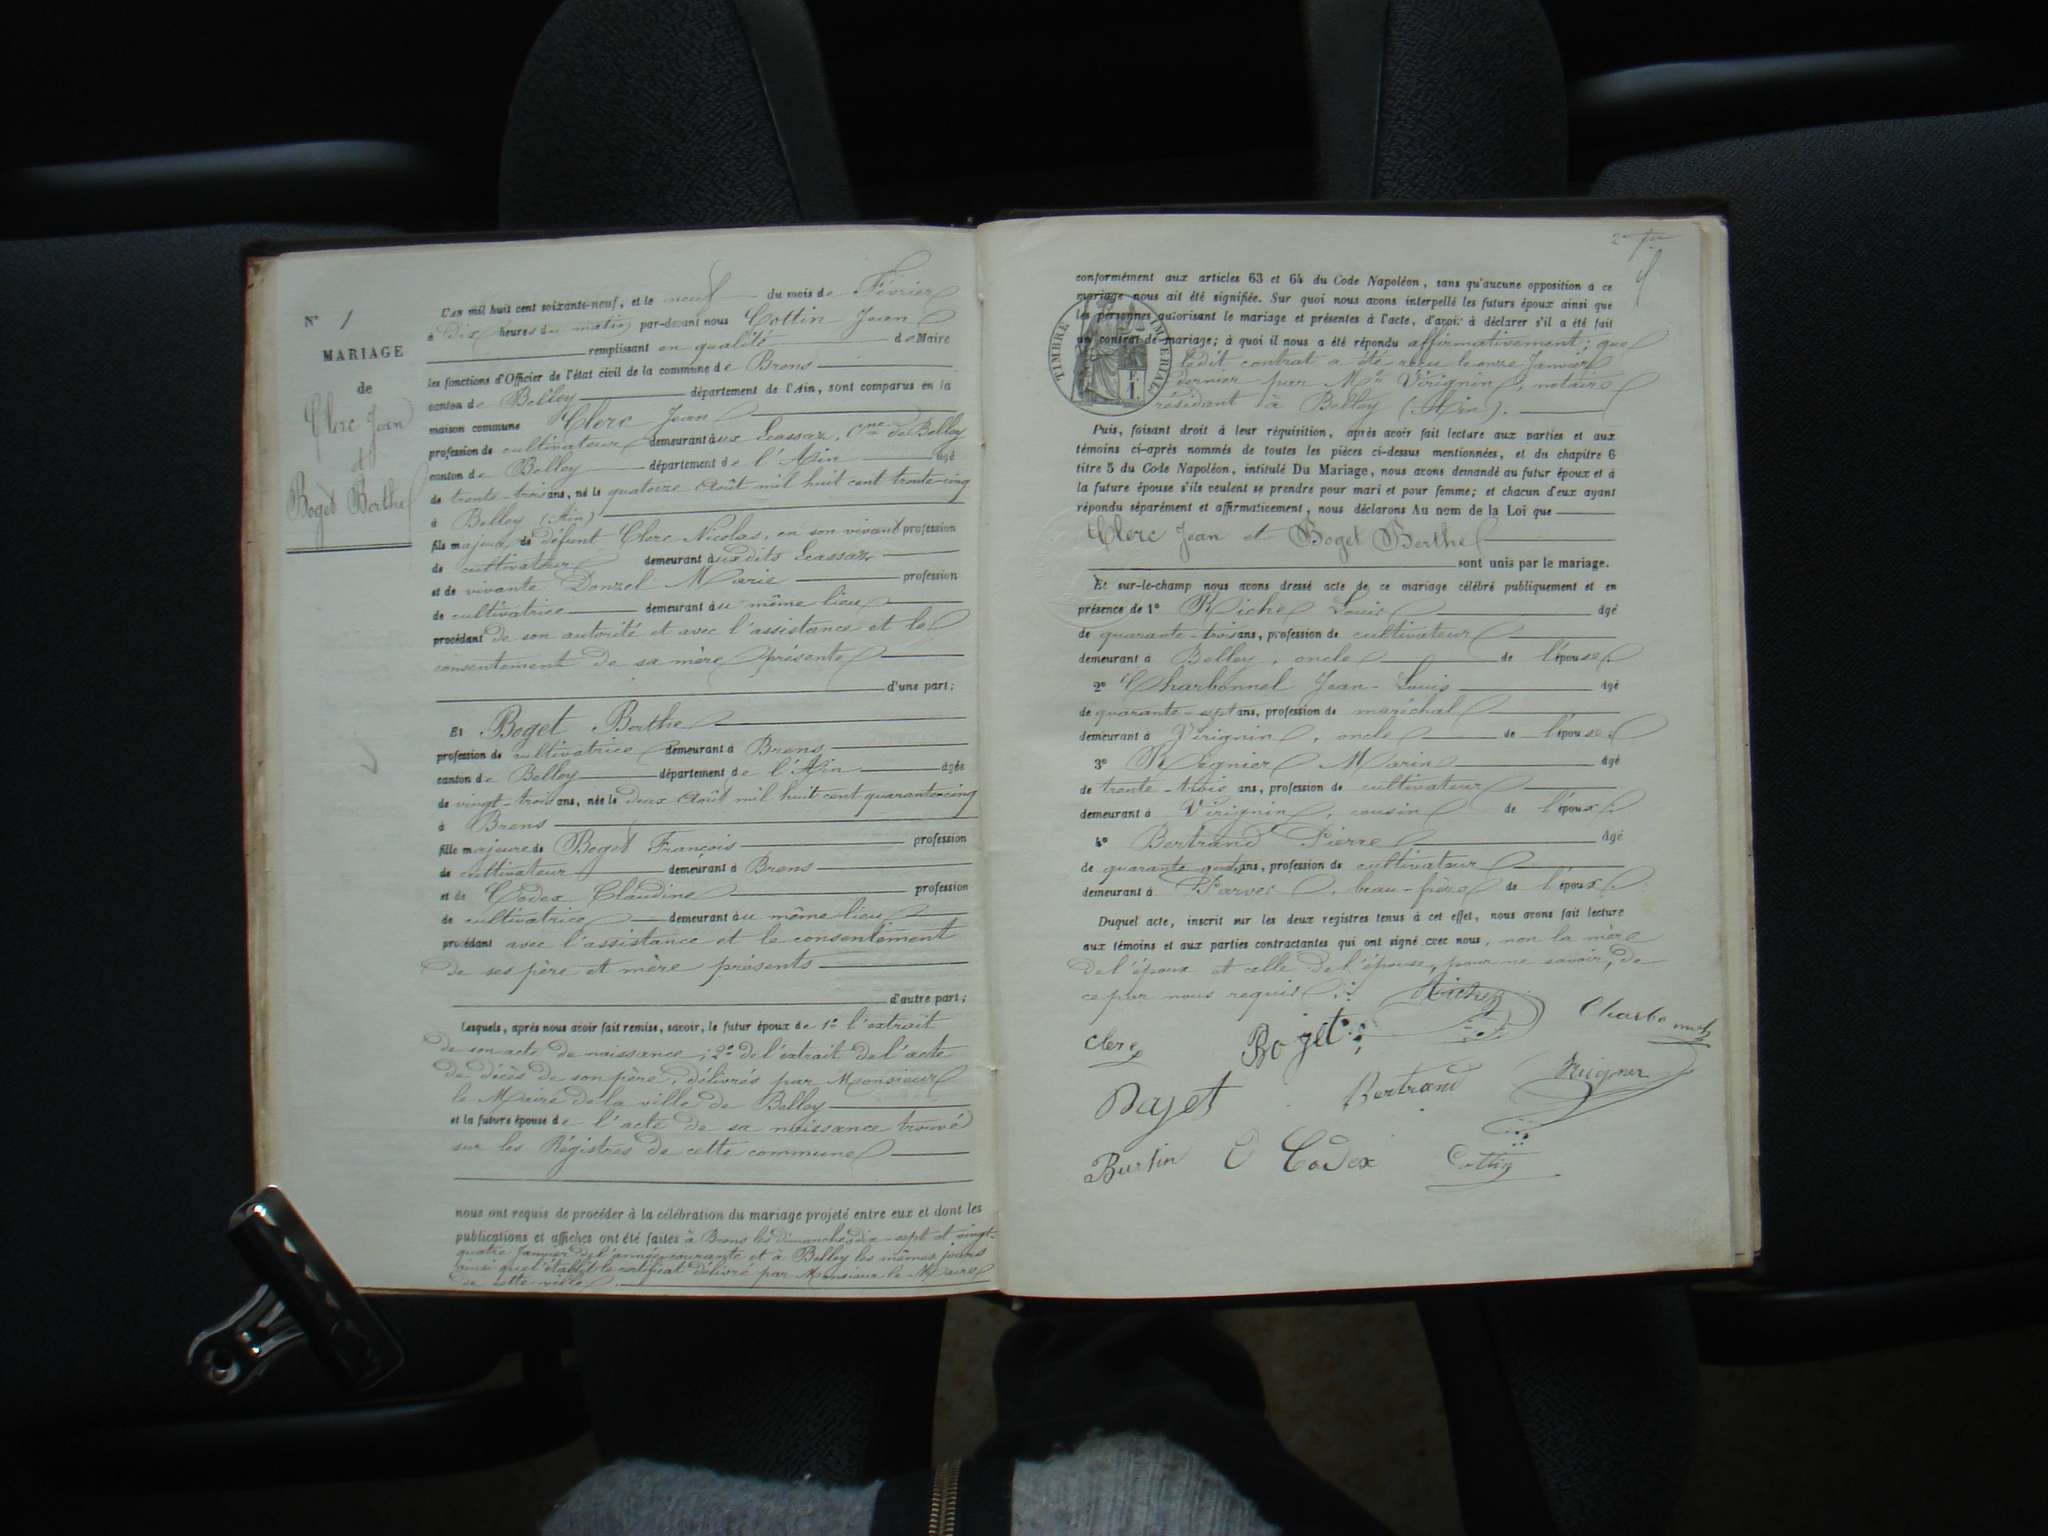 N° 1
MARIAGE
de
Clerc Jean
et
Boget Berthe
L'an mil huit cent soixante-neuf, et le neuf du mois de Février
à dix heures du matin par-devant nous Cottin Jean
remplissant en qualité de Maire
les fonctions d'Officier de l'état civil de la commune de Brens
canton de Belley département de l'Ain, sont comparus en la
maison commune Clerc Jean
profession de cultivateur demeurant aux Ecassaz, Cne de Belley
canton de Belley département de l'Ain âgé
de trente-trois ans, né le quatorze Août mil huit cent trente-cinq
à Belley (Ain)
fils majeur de défunt Clerc Nicolas, en son vivant profession
de cultivateur demeurant auxdits Ecassaz
et de vivante Donzel Marie profession
de cultivatrice demeurant au même lieu
procédant de son autorité et avec l'assistance et le
consentement de sa mère présente
d'une part;
Et Boget Berthe
profession de cultivatrice demeurant à Brens
canton de Belley département de l'Ain âgée
de vingt-trois ans, née le deux Août mil huit cent quarante-cinq
à Brens
fille majeure de Boget François profession
de cultivateur demeurant à Brens
et de Codex Claudine profession
de cultivatrice demeurant au même lieu
procédant avec l'assistance et le consentement
de ses père et mère présents
d'autre part;
Lesquels, après nous avoir fait remise, savoir, le futur époux de 1° l'extrait
de son acte de naissance; 2° de l'extrait de l'acte
de décès de son père, délivrés par Monsieur
le Maire de la ville de Belley
et la future épouse de l'acte de sa naissance trouvé
sur les Régistres de cette commune
nous ont requis de procéder à la célébration du mariage projeté entre eux et dont les
publications et affiches ont été faites à Brens les dimanches dix-sept et vingt-
quatre Janvier de l'année courante et à Belley les mêmes jours
ainsi que l'établit le certificat délivré par Monsieur le Maire
de cette ville.
conformément aux articles 63 et 64 du Code Napoléon, sans qu'aucune opposition à ce
mariage nous ait été signifiée. Sur quoi nous avons interpellé les futurs époux ainsi que
les personnes autorisant le mariage et présentes à l'acte, d'avoir à déclarer s'il a été fait
un contrat de mariage; à quoi il nous a été répondu affirmativement; que
ledit contrat a été reçu le onze Janvier
dernier par Me Virignin, notaire
résidant à Belley (Ain).
TIMBRE IMPERIAL
F.
1.
Puis, faisant droit à leur réquisition, après avoir fait lecture aux parties et aux
témoins ci-après nommés de toutes les pièces ci-dessus mentionnées, et du chapitre 6
titre 5 du Code Napoléon, intitulé Du Mariage, nous avons demandé au futur époux et à
la future épouse s'ils veulent se prendre pour mari et pour femme; et chacun d'eux ayant
répondu séparément et affirmativement, nous déclarons Au nom de la Loi que
Clerc Jean et Boget Berthe
sont unis par le mariage.
Et sur-le-champ nous avons dressé acte de ce mariage célébré publiquement et en
présence de 1° Riche Louis âgé
de quarante-trois ans, profession de cultivateur
demeurant à Belley, oncle de l'épouse.
2° Charbonnel Jean-Louis âgé
de quarante-sept ans, profession de maréchal
demeurant à Virignin, oncle de l'épouse.
3° Régnier Marin âgé
de trente-trois ans, profession de cultivateur
demeurant à Virignin, cousin de l'époux.
4° Bertrand Pierre âgé
de quarante ans, profession de cultivateur
demeurant à Parves, beau-frère de l'époux
Duquel acte, inscrit sur les deux registres tenus à cet effet, nous avons fait lecture
aux témoins et aux parties contractantes qui ont signé avec nous, non la mère
de l'époux et celle de l'épouse, pour ne savoir, de
ce par nous requis
Clerc Boget Charbonnel
Bajet Bertrand
Burtin C Codex Cottin